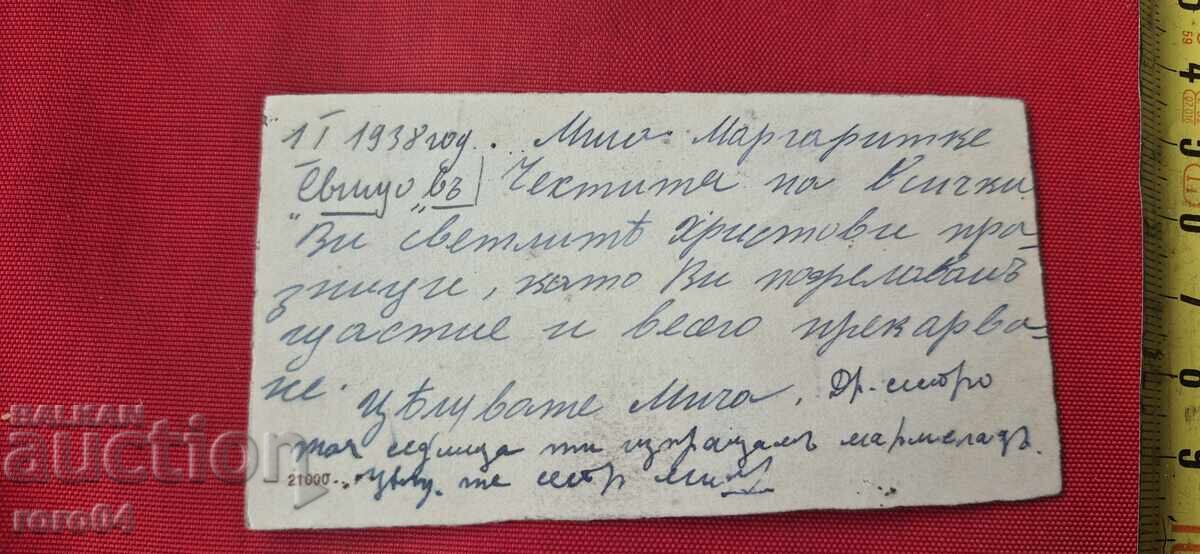 1 I 1938 год. Мила Маргаритке
Свищовъ Честитя на Всички
Ви светлитѣ Христови пра-
зници, като Ви пожелавамъ
щастие и весело прекарва-
не. Цѣлувате Мича. Др. сестро
тая седмица ти изпращамъ мармеладъ.
21000 те сестр
BALKAN
auction
roro64
59
4
5
6
7
8
9